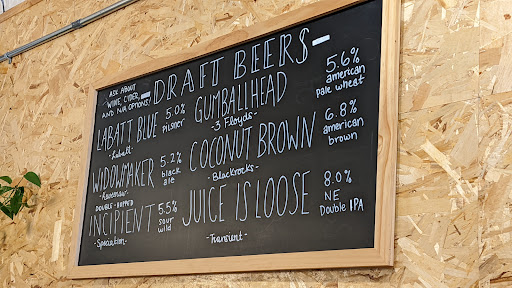 ASK ABOUT
WINE, CIDER,
AND N/A OPTIONS!
DRAFT BEERS
LABATT BLUE 5.0% pilsner
-Labatt-
WIDOWMAKER 5.2% black ale
DOUBLE - HOPPED
INCIPIENT 5.5% sour wild
-Speciation-
GUMBALLHEAD 5.6% american pale wheat
-3 Floyds-
COCONUT BROWN 6.8% american brown
-Blackrocks-
JUICE IS LOOSE 8.0% NE Double IPA
-Transient-